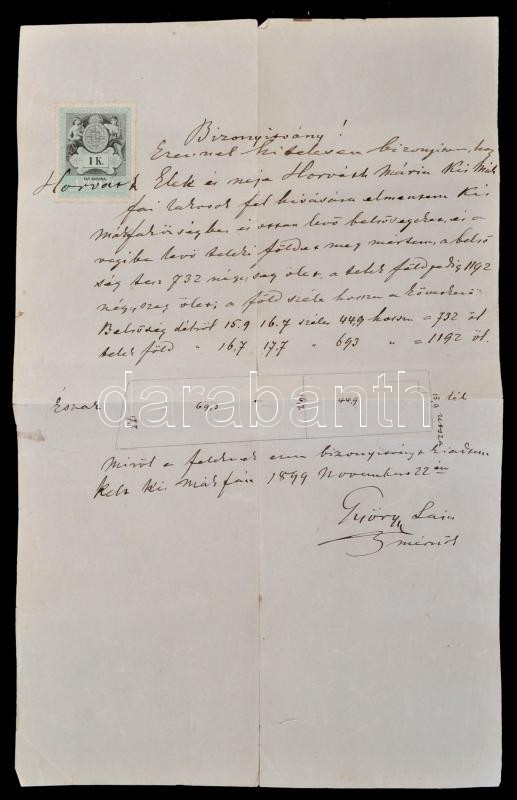 1 K.
Bizonyitvány!
Ezennel hitelesen bizonyitom, hogy
Horváth Elek és neje Horváth Mária Kis Mák
fai lakosok fel hivására elmentem Kis
Mákfa községbe és ottan levő belsőségeket, és a
végibe levő telki földet meg mértem, a belső
ség tesz 732 négyszög ölet, a telek föld pedig 1192
négyszeg ölet, a föld széle hossza a következő
Belsőség délről 15.9 16.7 széles 44,9 hossza = 732 öl
telek föld " 16.7 17.7 " 693 " = 1192 öl.
Észak 69,3 44,9 dél
Utsza
darabanth
Miről a feleknek ezen bizonyitványt kiadtam
Kelt Kis Mákfán 1899 November 22 én
György Lajos
mérnök